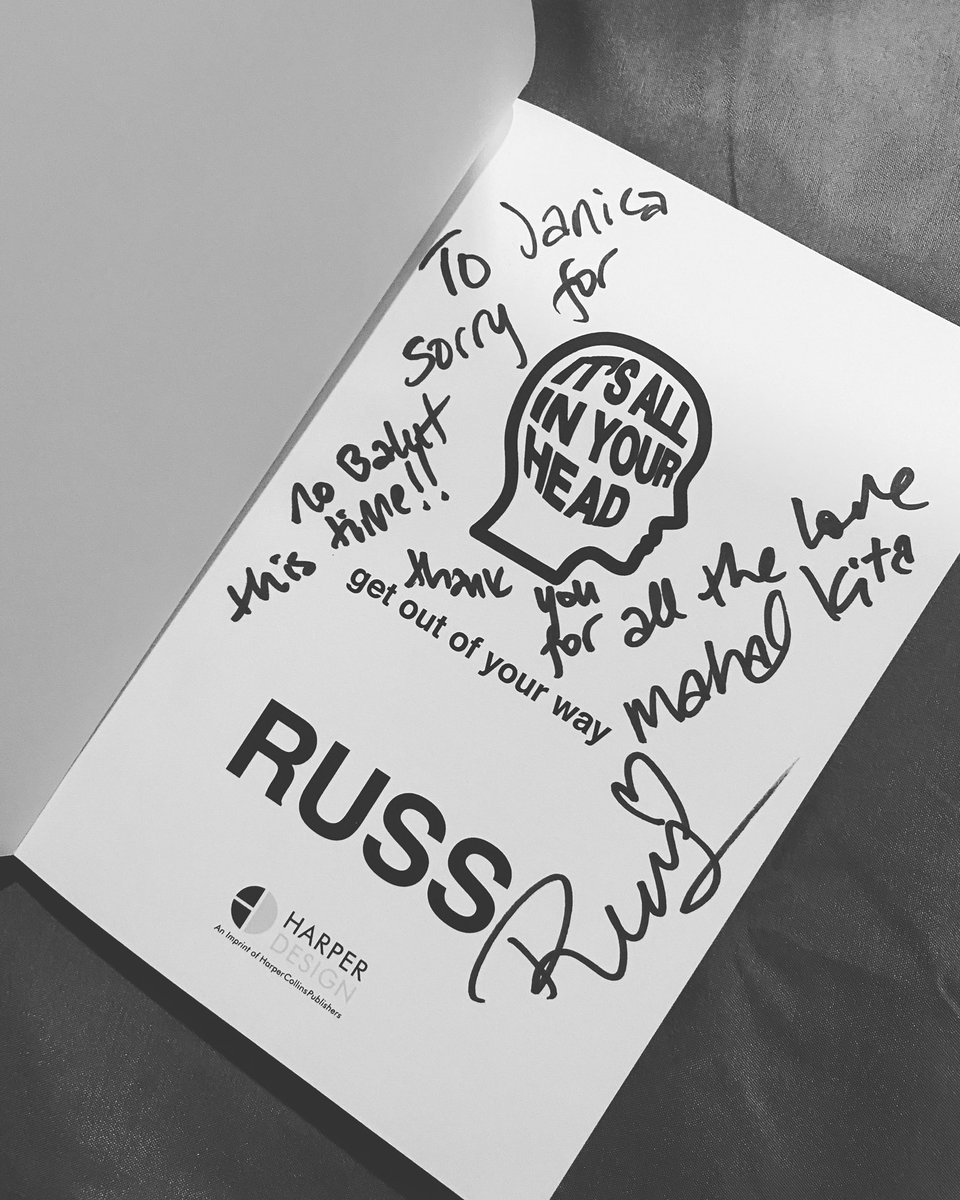 To Janica
Sorry for
no Balut
this time!!
IT'S ALL
IN YOUR
HEAD
thank you
for all the love
mahal kita
get out of your way
RUSS
Russ
HARPER
DESIGN
An Imprint of HarperCollinsPublishers